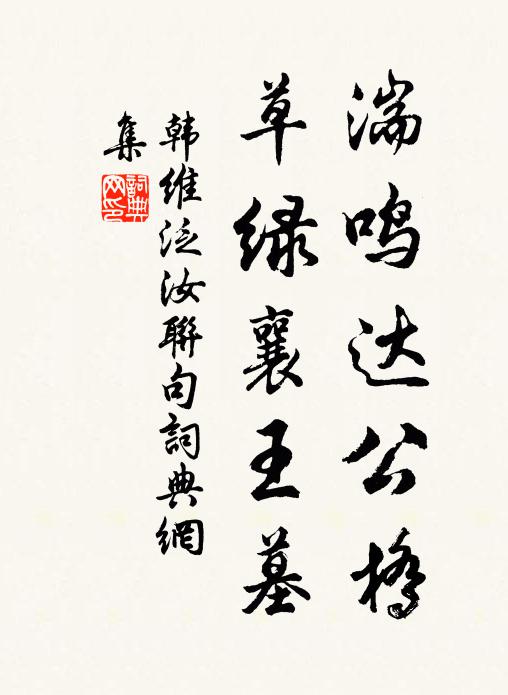 湍鸣达公桥
草绿襄王墓
韩维泛汝聯句詞典網
集
詞典网印